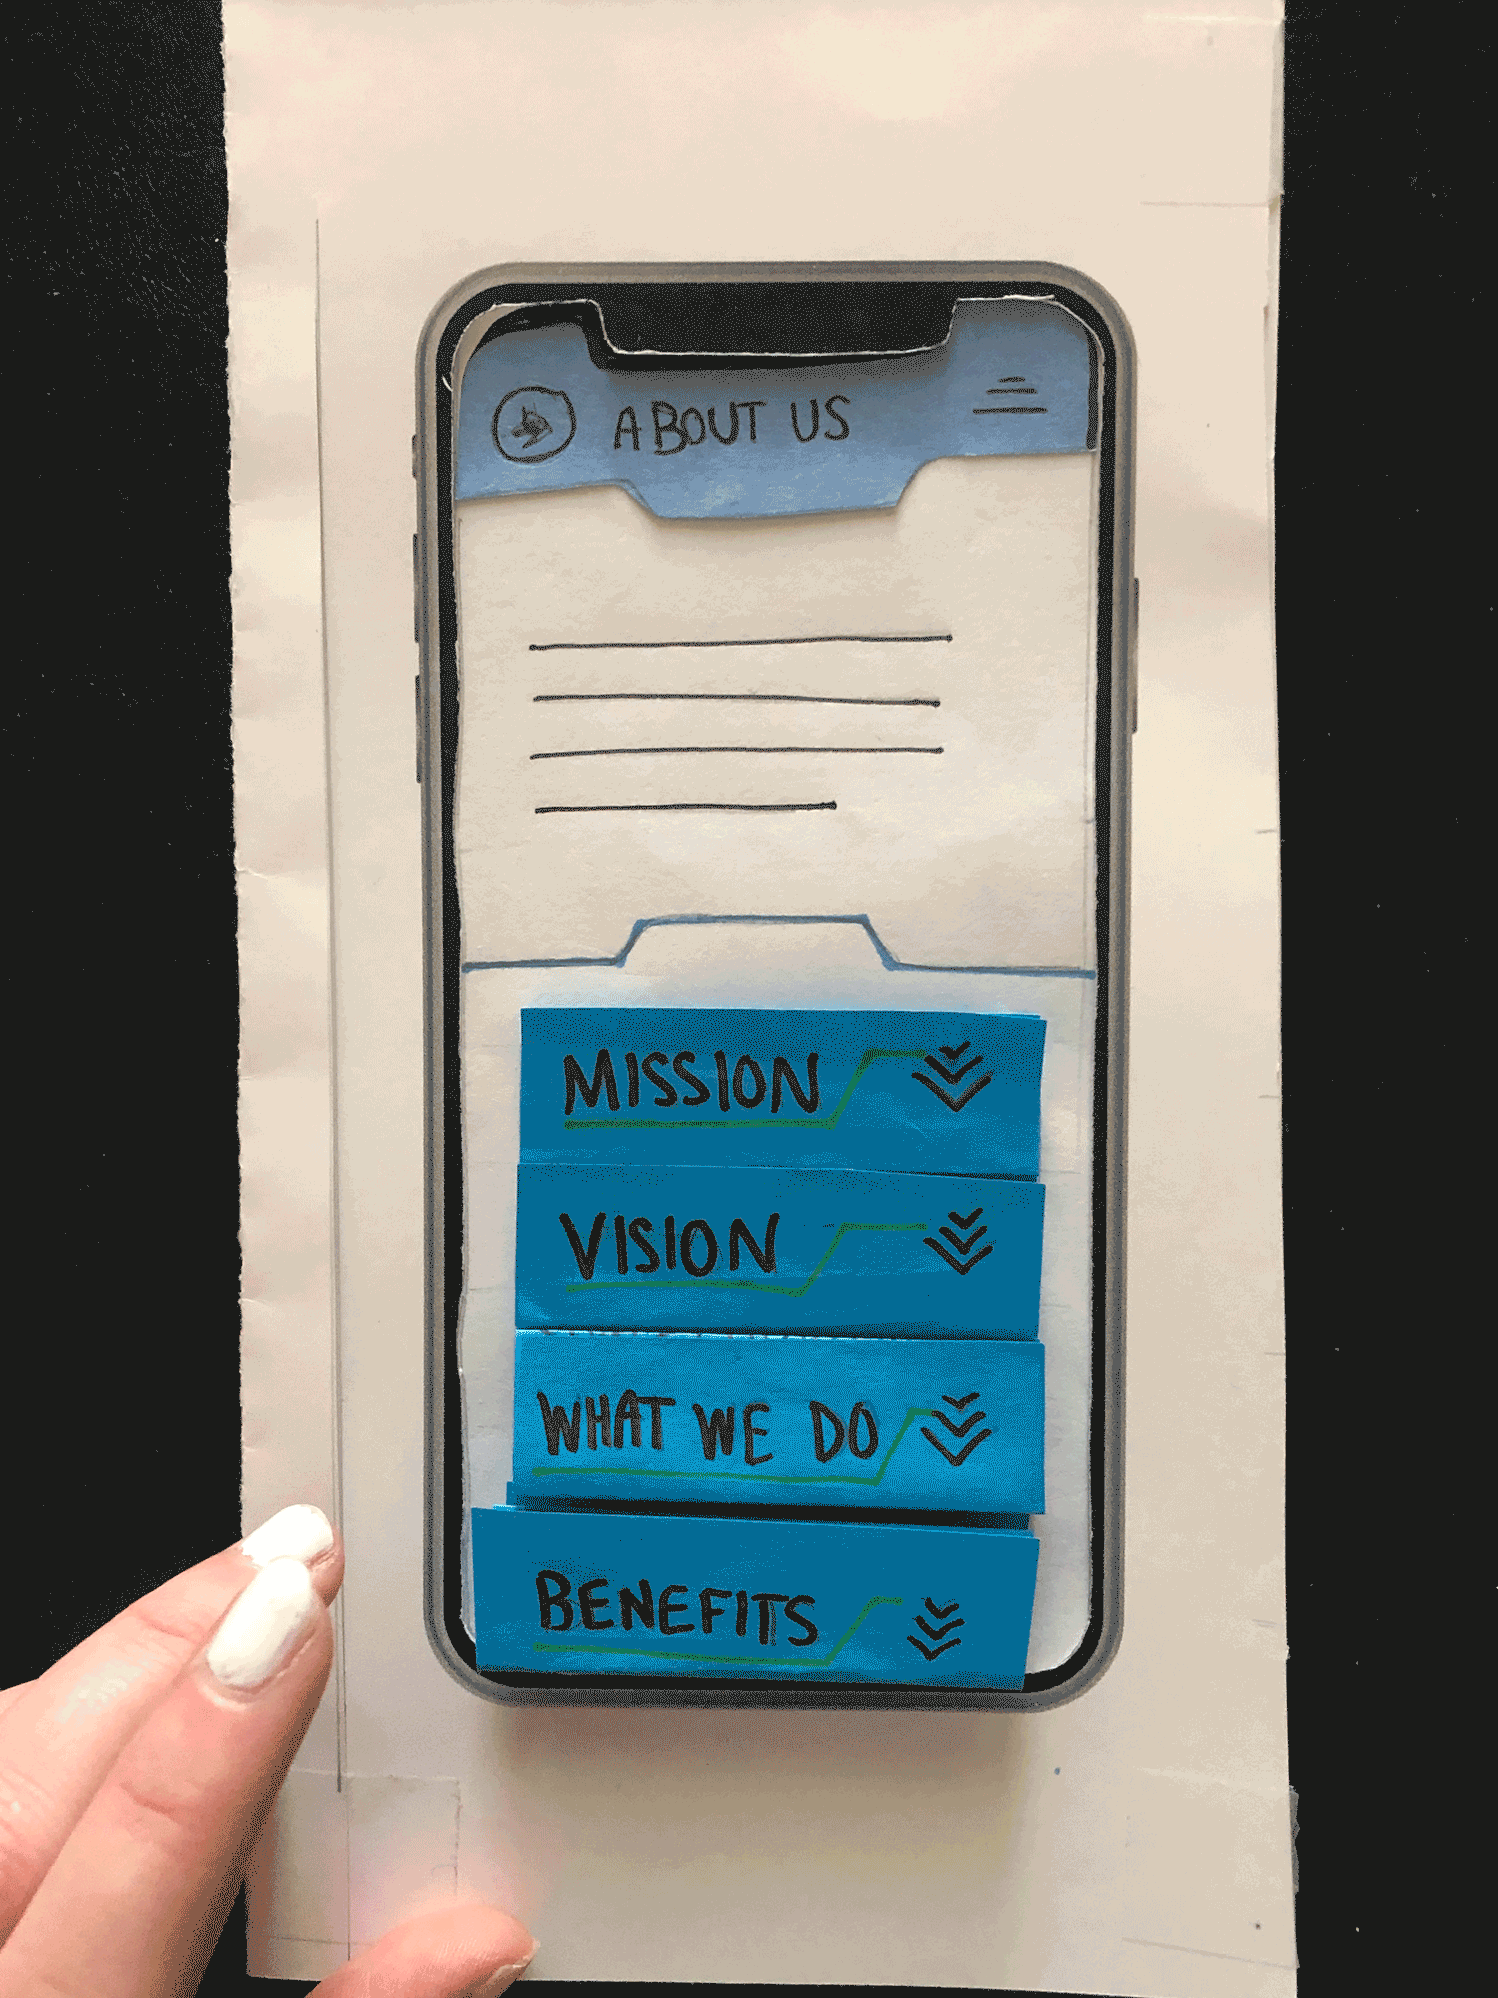 ABOUT US
MISSION
VISION
WHAT WE DO
BENEFITS